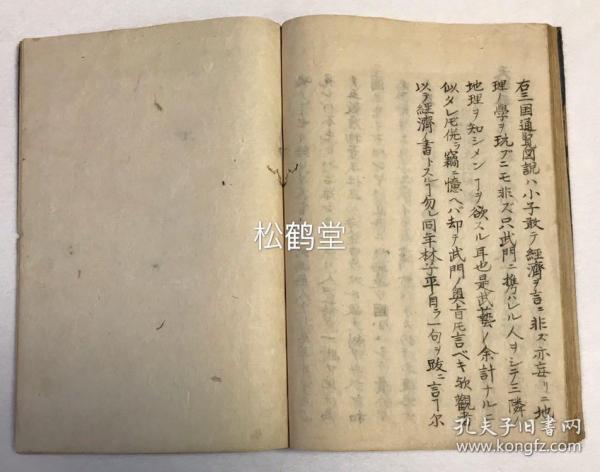 右三国通覧図説ハ小子敢テ経済ヲ言ニ非ズ亦妄リニ地
理ノ學ヲ玩ブニモ非ズ只武門ニ携ハレル人ヲシテ三隣
地理ヲ知シメンヿヲ欲スル耳也是武藝ノ余計ナルニ
似タレ𪜈倩ラ竊ニ憶ヘバ却テ武門ノ奥旨𪜈言ベキ欤觀者
以テ經濟ノ書トスルヿ勿レ同年林子平自ラ一句ヲ跋ニ言ヿ尓
松鹤堂
孔夫子旧书网
www.kongfz.com